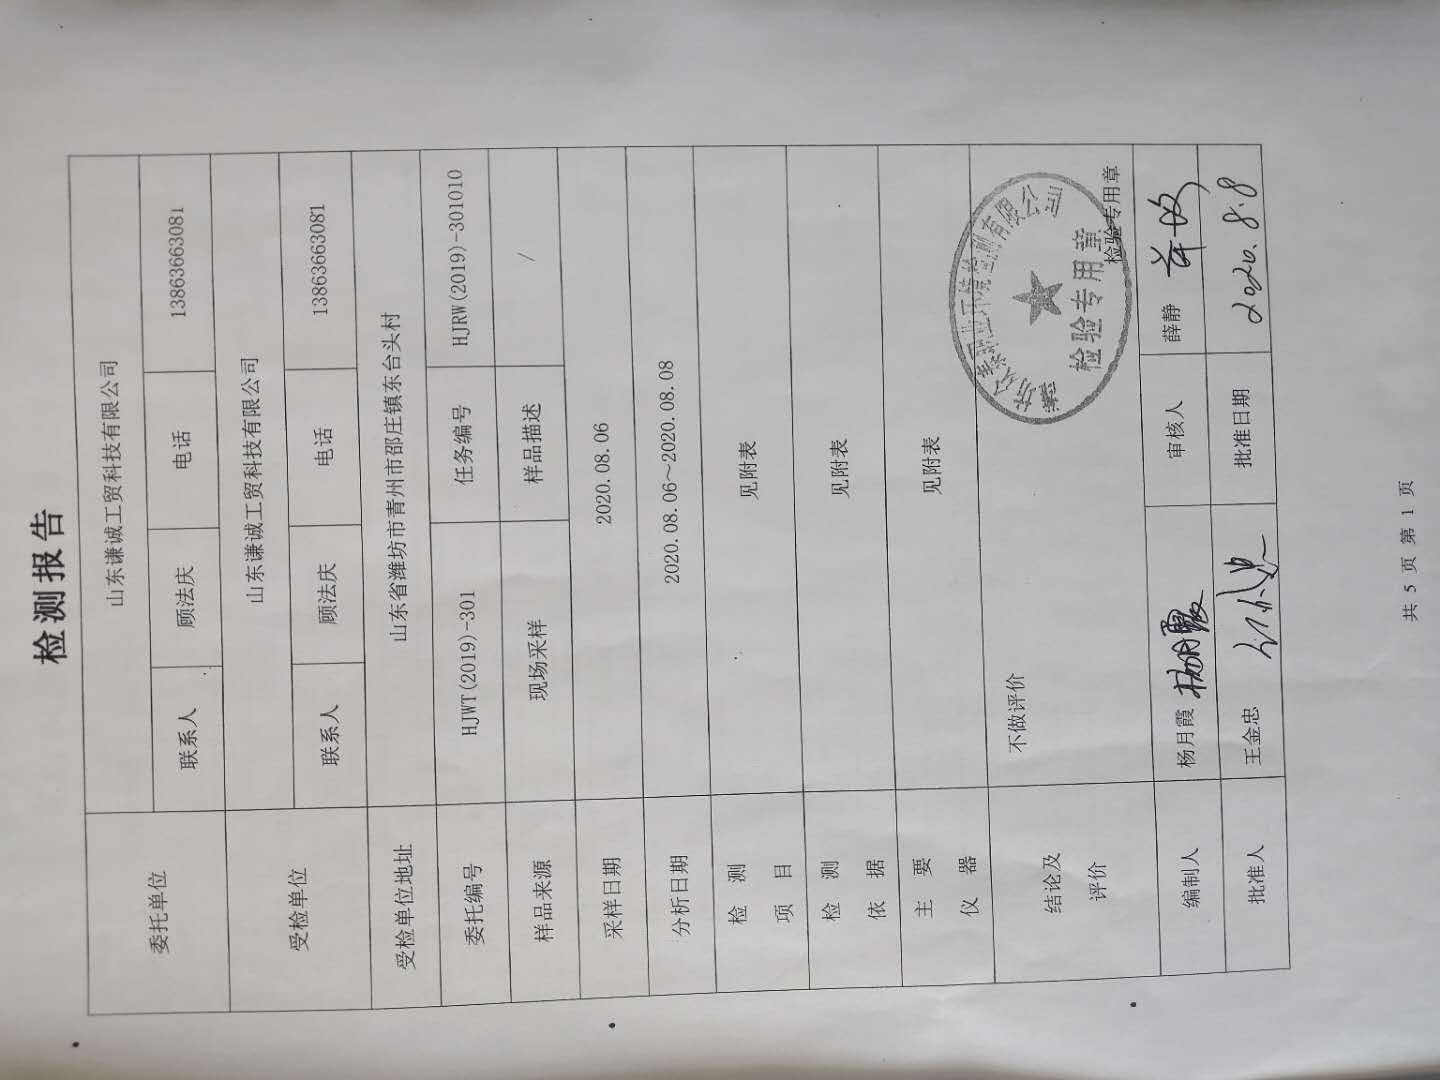 检测报告
委托单位 山东谦诚工贸科技有限公司
联系人 顾法庆 电话 13863663081
受检单位 山东谦诚工贸科技有限公司
联系人 顾法庆 电话 13863663081
受检单位地址 山东省潍坊市青州市邵庄镇东台头村
委托编号 HJWT(2019)-301 任务编号 HJRW(2019)-301010
样品来源 现场采样 样品描述 /
采样日期 2020.08.06
分析日期 2020.08.06~2020.08.08
检测项目 见附表
检测依据 见附表
主要仪器 见附表
结论及评价 不做评价
检验专用章
检验专用章
编制人 杨月霞 杨月霞 审核人 薛静
批准人 王金忠 批准日期 2020.8.8
共 5 页 第 1 页